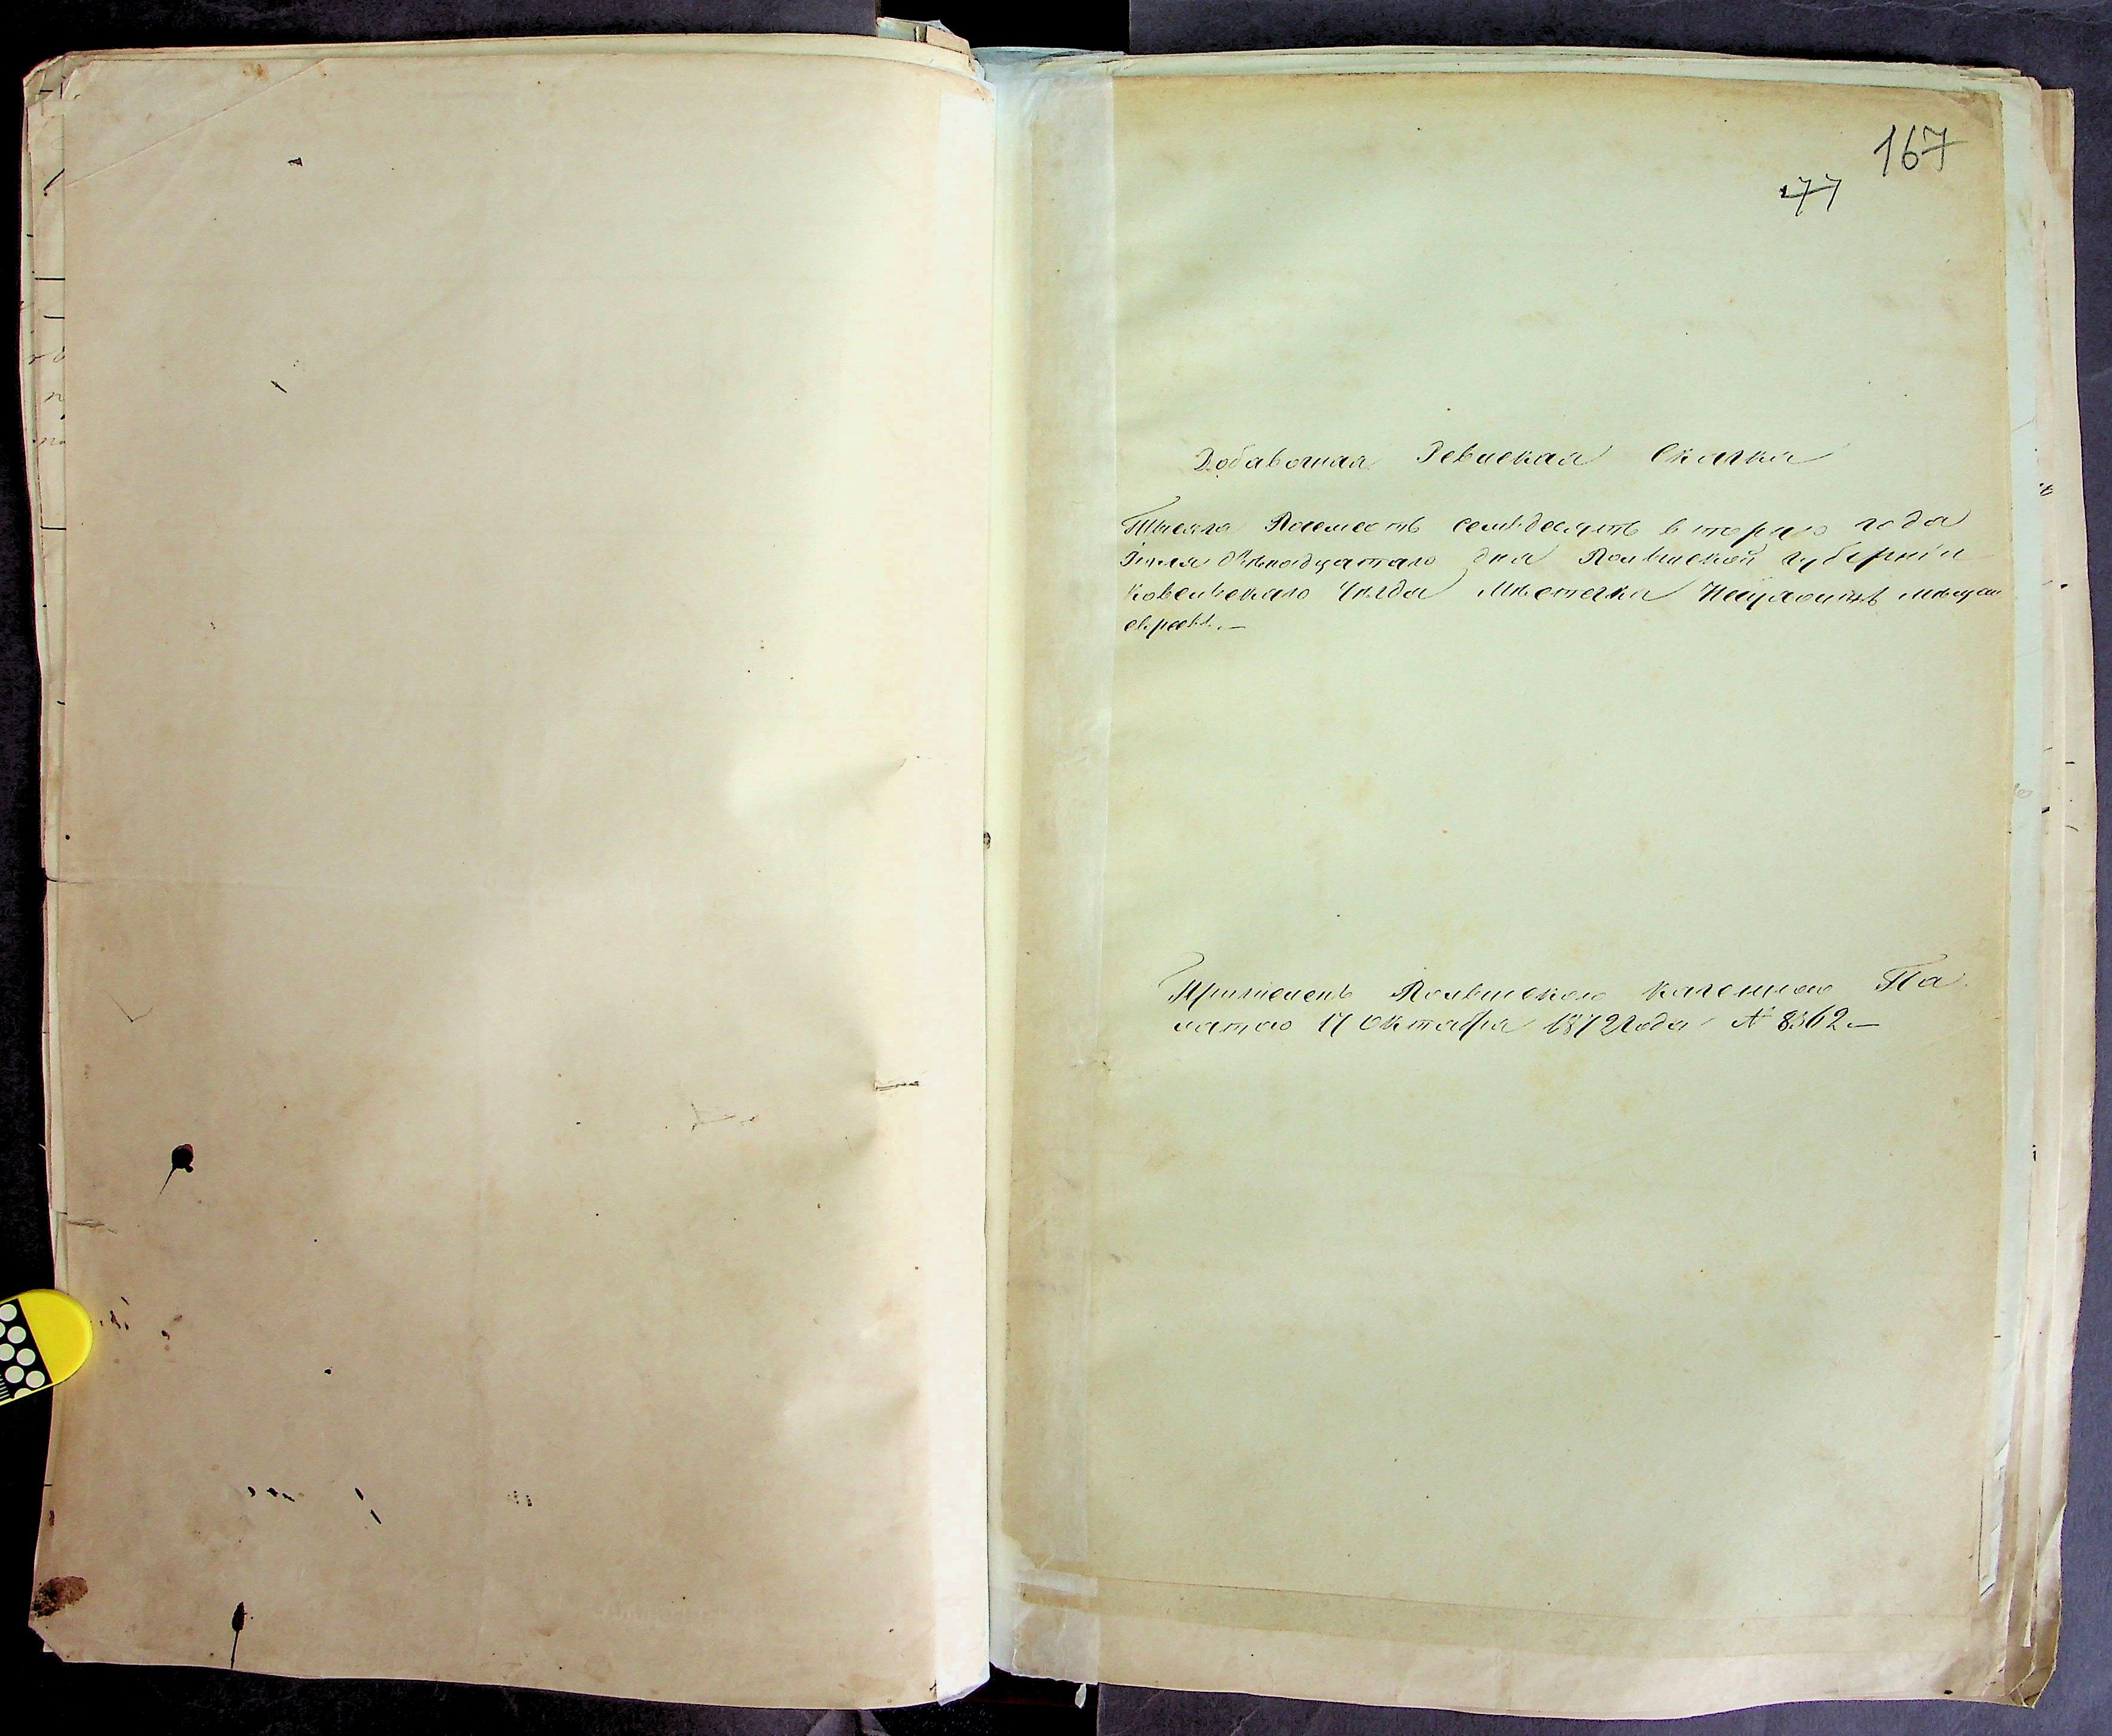 167
77
Добавочная Ревизская Сказка
Тысяча Восемсотъ семьдесятъ втораго года
Іюля двенадцатаго дня Волынской губерніи
Ковельскаго Уѣзда Мѣстечка мѣщан
евреевъ. —
Причисленъ Волынскою Казенною Па
латою 17 Октября 1872 года № 8362 —